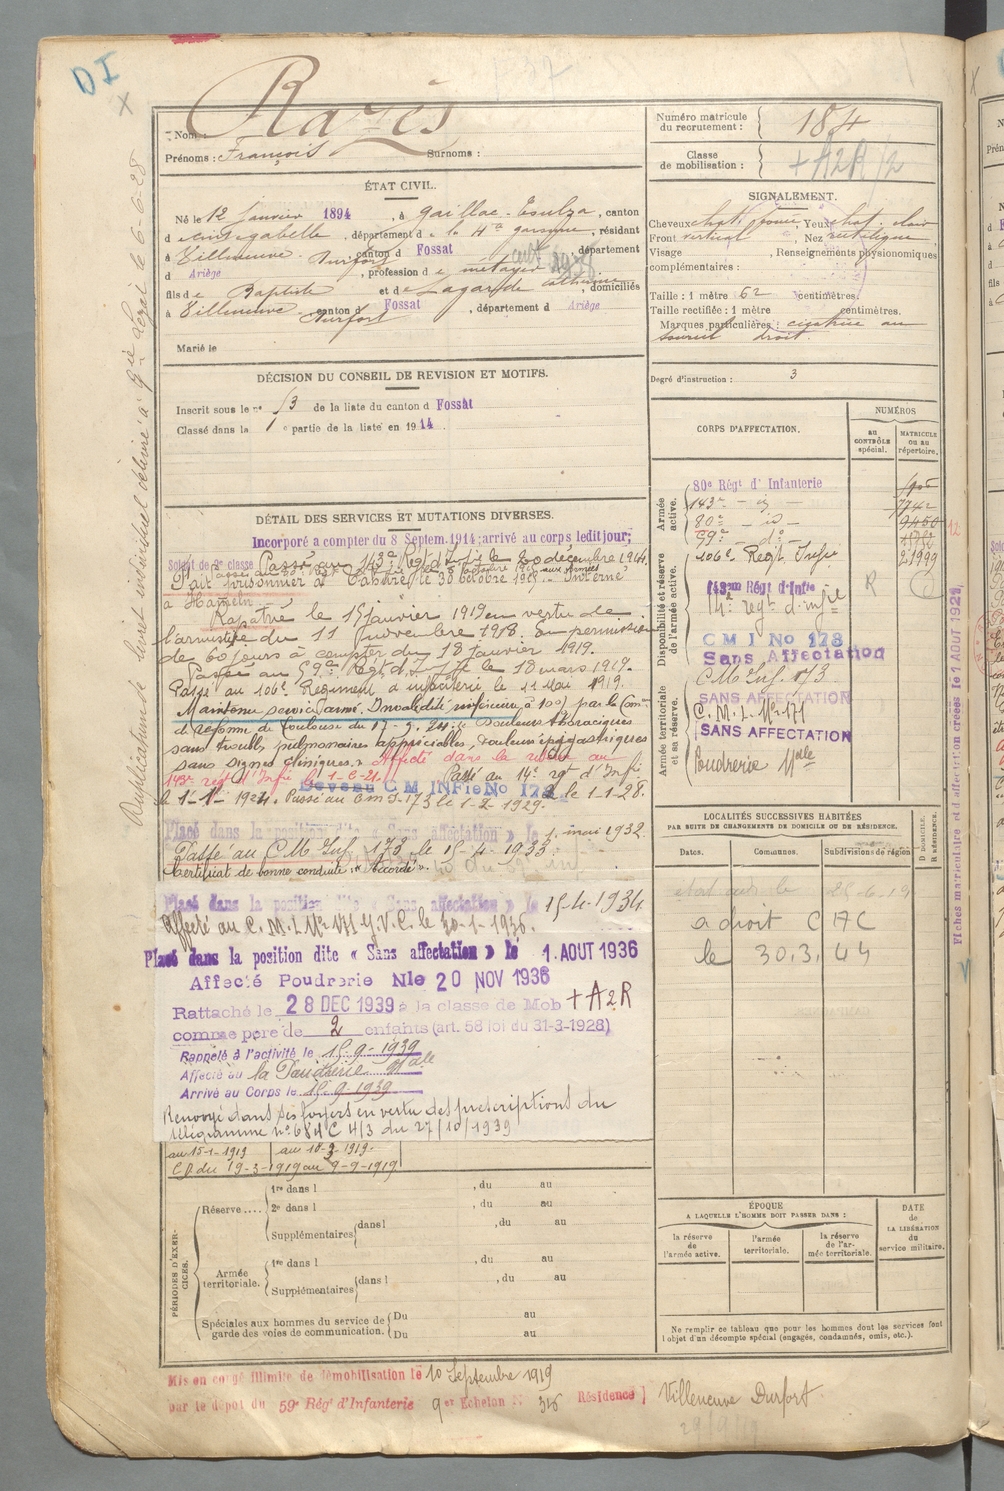 DI
Nom : Razès
Prénoms : François Surnoms :
Numéro matricule du recrutement : 184
Classe de mobilisation : + A2R/2
ÉTAT CIVIL.
Né le 12 Janvier 1894, à Gaillac-Toulza, canton
d Cintegabelle, département d e la Hte garonne, résidant
à Villeneuve-Durfort canton d Fossat département
d Ariège, profession d e métayer
fils de Baptiste et de Lagarde Catherine, domiciliés
à Villeneuve-Durfort canton d Fossat, département d Ariège
Marié le
SIGNALEMENT.
Cheveux chat. foncé Yeux chat. clair
Front vertical, Nez rectiligne,
Visage , Renseignements physionomiques
complémentaires :
Taille : 1 mètre 62 centimètres.
Taille rectifiée : 1 mètre centimètres.
Marques particulières : cicatrice au
sourcil droit.
Degré d'instruction : 3
DÉCISION DU CONSEIL DE REVISION ET MOTIFS.
Inscrit sous le n° 13 de la liste du canton d Fossat
Classé dans la 1 e partie de la liste en 1914.
CORPS D'AFFECTATION.
NUMÉROS
AU CONTRÔLE spécial.
MATRICULE ou au répertoire.
Armée active.
80e Régt d'Infanterie
143e - id -
80e - id -
59e - do -
7742
9450
Disponibilité et réserve de l'armée active.
106e Regt Infie 21999
143me Régt d'Infie R
14e regt d'infie
C M I No 178
Sans Affectation
Armée territoriale et sa réserve.
C M Inf. 173
SANS AFFECTATION
C. M. I. No 171
SANS AFFECTATION
Poudrerie Nale
DÉTAIL DES SERVICES ET MUTATIONS DIVERSES.
Incorporé à compter du 8 Septem. 1914; arrivé au corps ledit jour;
Soldat de 2e classe Passé au 143e Régt d'Infie le 20 décembre 1914.
Fait prisonnier à le 30 octobre Interné
à Hameln.
Rapatrié le 15 janvier 1919 en vertu de
l'armistice du 11 Novembre 1918. En permission
de 60 jours à compter du 18 janvier 1919.
Passé au 59e Régt d'Infie le 18 mars 1919.
Passé au 106e Régiment d'infanterie le 11 Mai 1919.
Maintenu service armé. Invalidité inférieure à 10% par la Com
d réforme de Toulouse du 17-5-24: « Douleurs thoraciques
sans troubles pulmonaires appréciables, douleurs épigastriques
sans signes cliniques. » Affecté dans la réserve au
143e regt d'Infie le 1-6-21. Passé au 14e regt d'Infie
le 1-1-1924. Devenu C M INFie No 178 le 1-1-28.
Passé au Cm I-173 le 1-2 1929.
Placé dans la position dite « Sans affectation » le 1 mai 1932
Passé au C.M. Inf. 173 le 15-4-1933.
Certificat de bonne conduite : « Accordé ».
Placé dans la position dite « Sans affectation » le 15-4-1934
Affecté au C. M. I. No 171 G.V.C. le 30-1-1936.
Placé dans la position dite « Sans affectation » le 1. AOUT 1936
Affecté Poudrerie Nle 20 NOV 1936
Rattaché le 28 DEC 1939 à la classe de Mob + A2R
comme père de 2 enfants (art. 58 loi du 31-3-1928)
Rappelé à l'activité le 15-9-1939
Affecté au la Poudrerie Nale
Arrivé au Corps le 15-9-1939
Renvoyé dans ses foyers en vertu des prescriptions du
télégramme no 684 C 4/3 du 27/10/1939
au 15-1-1919 au 18-3-1919.
CD du 19-3-1919 au 9-9-1919
LOCALITÉS SUCCESSIVES HABITÉES
PAR SUITE DE CHANGEMENTS DE DOMICILE OU DE RÉSIDENCE.
Dates. Communes. Subdivisions de région D DOMICILE. R RÉSIDENCE.
a droit C A C
le 30.3.44
PÉRIODES D'EXERCICES.
Réserve....
1re dans l , du au
2e dans l , du au
Supplémentaires dans l , du au
Armée territoriale.
1re dans l , du au
Supplémentaires dans l , du au
Spéciales aux hommes du service de garde des voies de communication.
Du au
Du au
ÉPOQUE
A LAQUELLE L'HOMME DOIT PASSER DANS :
la réserve de l'armée active.
l'armée territoriale.
la réserve de l'armée territoriale.
DATE de LA LIBÉRATION du service militaire.
Ne remplir ce tableau que pour les hommes dont les services font
l'objet d'un décompte spécial (engagés, condamnés, omis, etc.).
Mis en congé illimité de démobilisation le 10 Septembre 1919
par le dépôt du 59e Régt d'Infanterie 9er Echelon N 316 Résidence Villeneuve Durfort
Duplicature de livret individuel délivré à le 6-6-28
Fiches matriculaire et d'affectation créées le 1 AOUT 1927